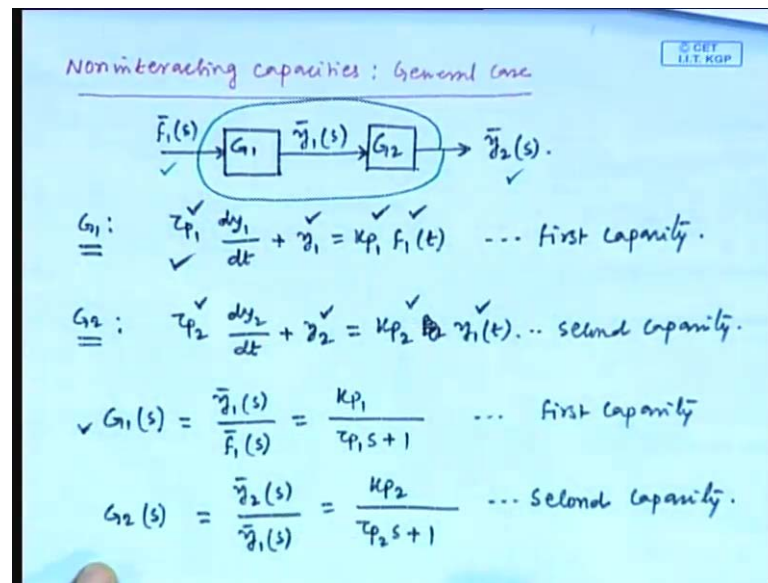 Noninteracting capacities : General Case
© CET
I.I.T. KGP
f̄₁(s) G₁ ȳ₁(s) G₂ ȳ₂(s).
G₁ : τp₁ dy₁/dt + y₁ = Kp₁ f₁(t) --- first capacity.
G₂ : τp₂ dy₂/dt + y₂ = Kp₂ y₁(t). .. second capacity.
G₁(s) = ȳ₁(s)/f̄₁(s) = Kp₁/τp₁s + 1 ... first capacity
G₂(s) = ȳ₂(s)/ȳ₁(s) = Kp₂/τp₂s + 1 ... second capacity.